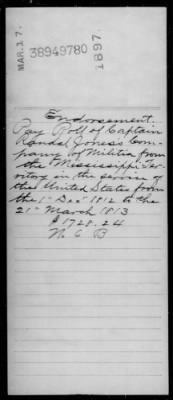 MAR. 17.
38949780
1897.
Endorsement.
Pay Roll of Captain
Randal Jones's Com-
pany of Militia from
the Mississippi Ter-
ritory in the service of
the United States from
the 1st Dec 1812 to the
21st March 1813
$1728.24
N C B